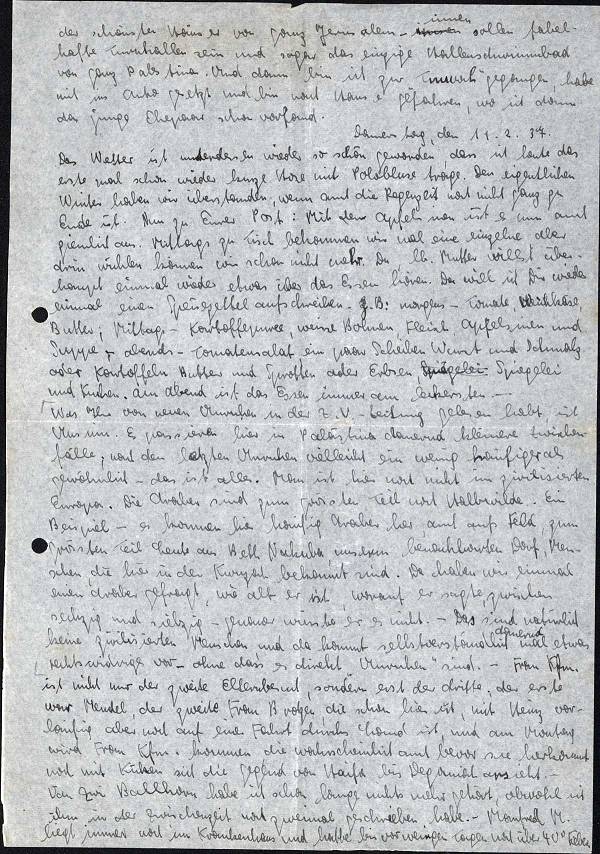 der schönsten Häuser von ganz Jerusalem – innen sollen fabel-
hafte Turnhallen sein und sogar das einzige Hallenschwimmbad
von ganz Palästina. Und dann bin ich zur gegangen, habe
mich ins Auto gesetzt und bin nach Hause gefahren, wo ich dann
das junge Ehepaar schon vorfand.
Donnerstag, den 11.2.37.
Das Wetter ist unterdessen wieder so schön geworden, dass ich heute das
erste mal schon wieder kurze Hose mit Polobluse trage. Den eigentlichen
Winter haben wir überstanden, wenn auch die Regenzeit noch nicht ganz zu
Ende ist. Nun zu Eurer Post: Mit den Apfelsinen ist es nun auch
ziemlich aus. Mittags zu Tisch bekommen wir mal eine einzelne aber
drin wühlen können wir schon nicht mehr. Du lb. Mutter willst über-
haupt einmal wieder etwas über das Essen hören. Da will ich Dir wieder
einmal einen Speisezettel aufschreiben. z.B: morgens – Tomate, Weichkäse,
Butter; Mittags – Kartoffelpuree, weisse Bohnen, Fleisch, Apfelsinen und
Suppe – abends – Tomatensalat ein paar Scheiben Wurst und Schmalz
oder Kartoffeln Butter und Sprotten oder Erbsen, Spiegelei
und Kuchen. Am Abend ist das Essen immer am leckersten. –
Was Ihr von neuen Unruhen in der Z.V.-Zeitung gelesen habt ist
Unsinn. Es passieren hier in Palästina dauernd kleinere Zwischen-
fälle, nach den letzten Unruhen vielleicht ein wenig häufiger als
gewöhnlich – das ist alles. Man ist hier noch nicht im zivilisierten
Europa. Die Araber sind zum grössten Teil noch Halbwilde. Ein
Beispiel – es kommen hier häufig Araber her, auch aufs Feld, zum
grössten Teil Leute aus Beth Nakuba, unserem benachbarten Dorf, Men-
schen, die hier in der Kwuzah bekannt sind. Da haben wir einmal
einen Araber gefragt, wie alt er ist, worauf er sagte, zwischen
sechzig und siebzig – genauer wüsste er es nicht. – Das sind natürlich
keine zivilisierten Menschen und da kommt selbstverständlich dauernd mal etwas
rechtswidriges vor – ohne dass es direkt "Unruhen" sind. – Frau Kfm.
ist nicht nur der zweite Elternbesuch, sondern erst der dritte. der erste
war Mendel, der zweite Frau Brotzen, die schon hier ist, mit Heinz vor-
läufig aber noch auf einer Fahrt durchs Land ist, und am Montag
wird Frau Kfm. kommen die wahrscheinlich auch bevor sie herkommt
noch mit sich die Gegend von Haifa bis Deganiah ansieht. –
Von Zwi Ballhorn habe ich schon lange nichts mehr gehört, obwohl ich
ihm in der Zwischenzeit noch zweimal geschrieben habe. – Manfred M.
liegt immer noch im Krankenhaus und hatte bis vor wenigen Tagen noch über 40° Fieber.